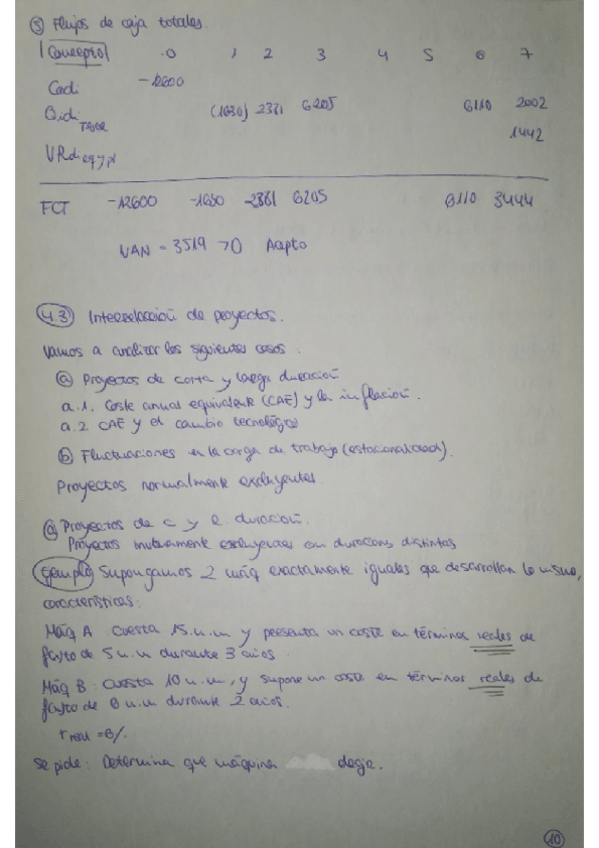 ⑤ Flujos de caja totales.
|Concepto| 0 1 2 3 4 5 6 7
Cadi -12600
Qidi (1630) 2381 6205 6110 2002
1442
VRdi eq y pl
FCT -12600 -1630 2381 6205 6110 3444
VAN = 3519 >0 Apto
4.3 Interrelación de proyectos.
Vamos a analizar los siguientes casos.
ⓐ Proyectos de corta y larga duración
a.1. Coste anual equivalente (CAE) y la inflación.
a.2 CAE y el cambio tecnológico
ⓑ Fluctuaciones en la carga de trabajo (estacionalidad).
Proyectos normalmente excluyentes
ⓐ Proyectos de c y l. duración.
Proyectos mutuamente excluyentes con duracions distintas
Ejemplo Supongamos 2 máq exactamente iguales que desarrollan lo mismo,
características:
Máq A cuesta 15 u.m y presenta un coste en términos reales de
fcto de 5 u.m durante 3 años.
Máq B: cuesta 10 u.m, y supone un coste en términos reales de
fcto de 6 u.m durante 2 años.
r real = 6%.
Se pide: Determina que máquina elegir.
10